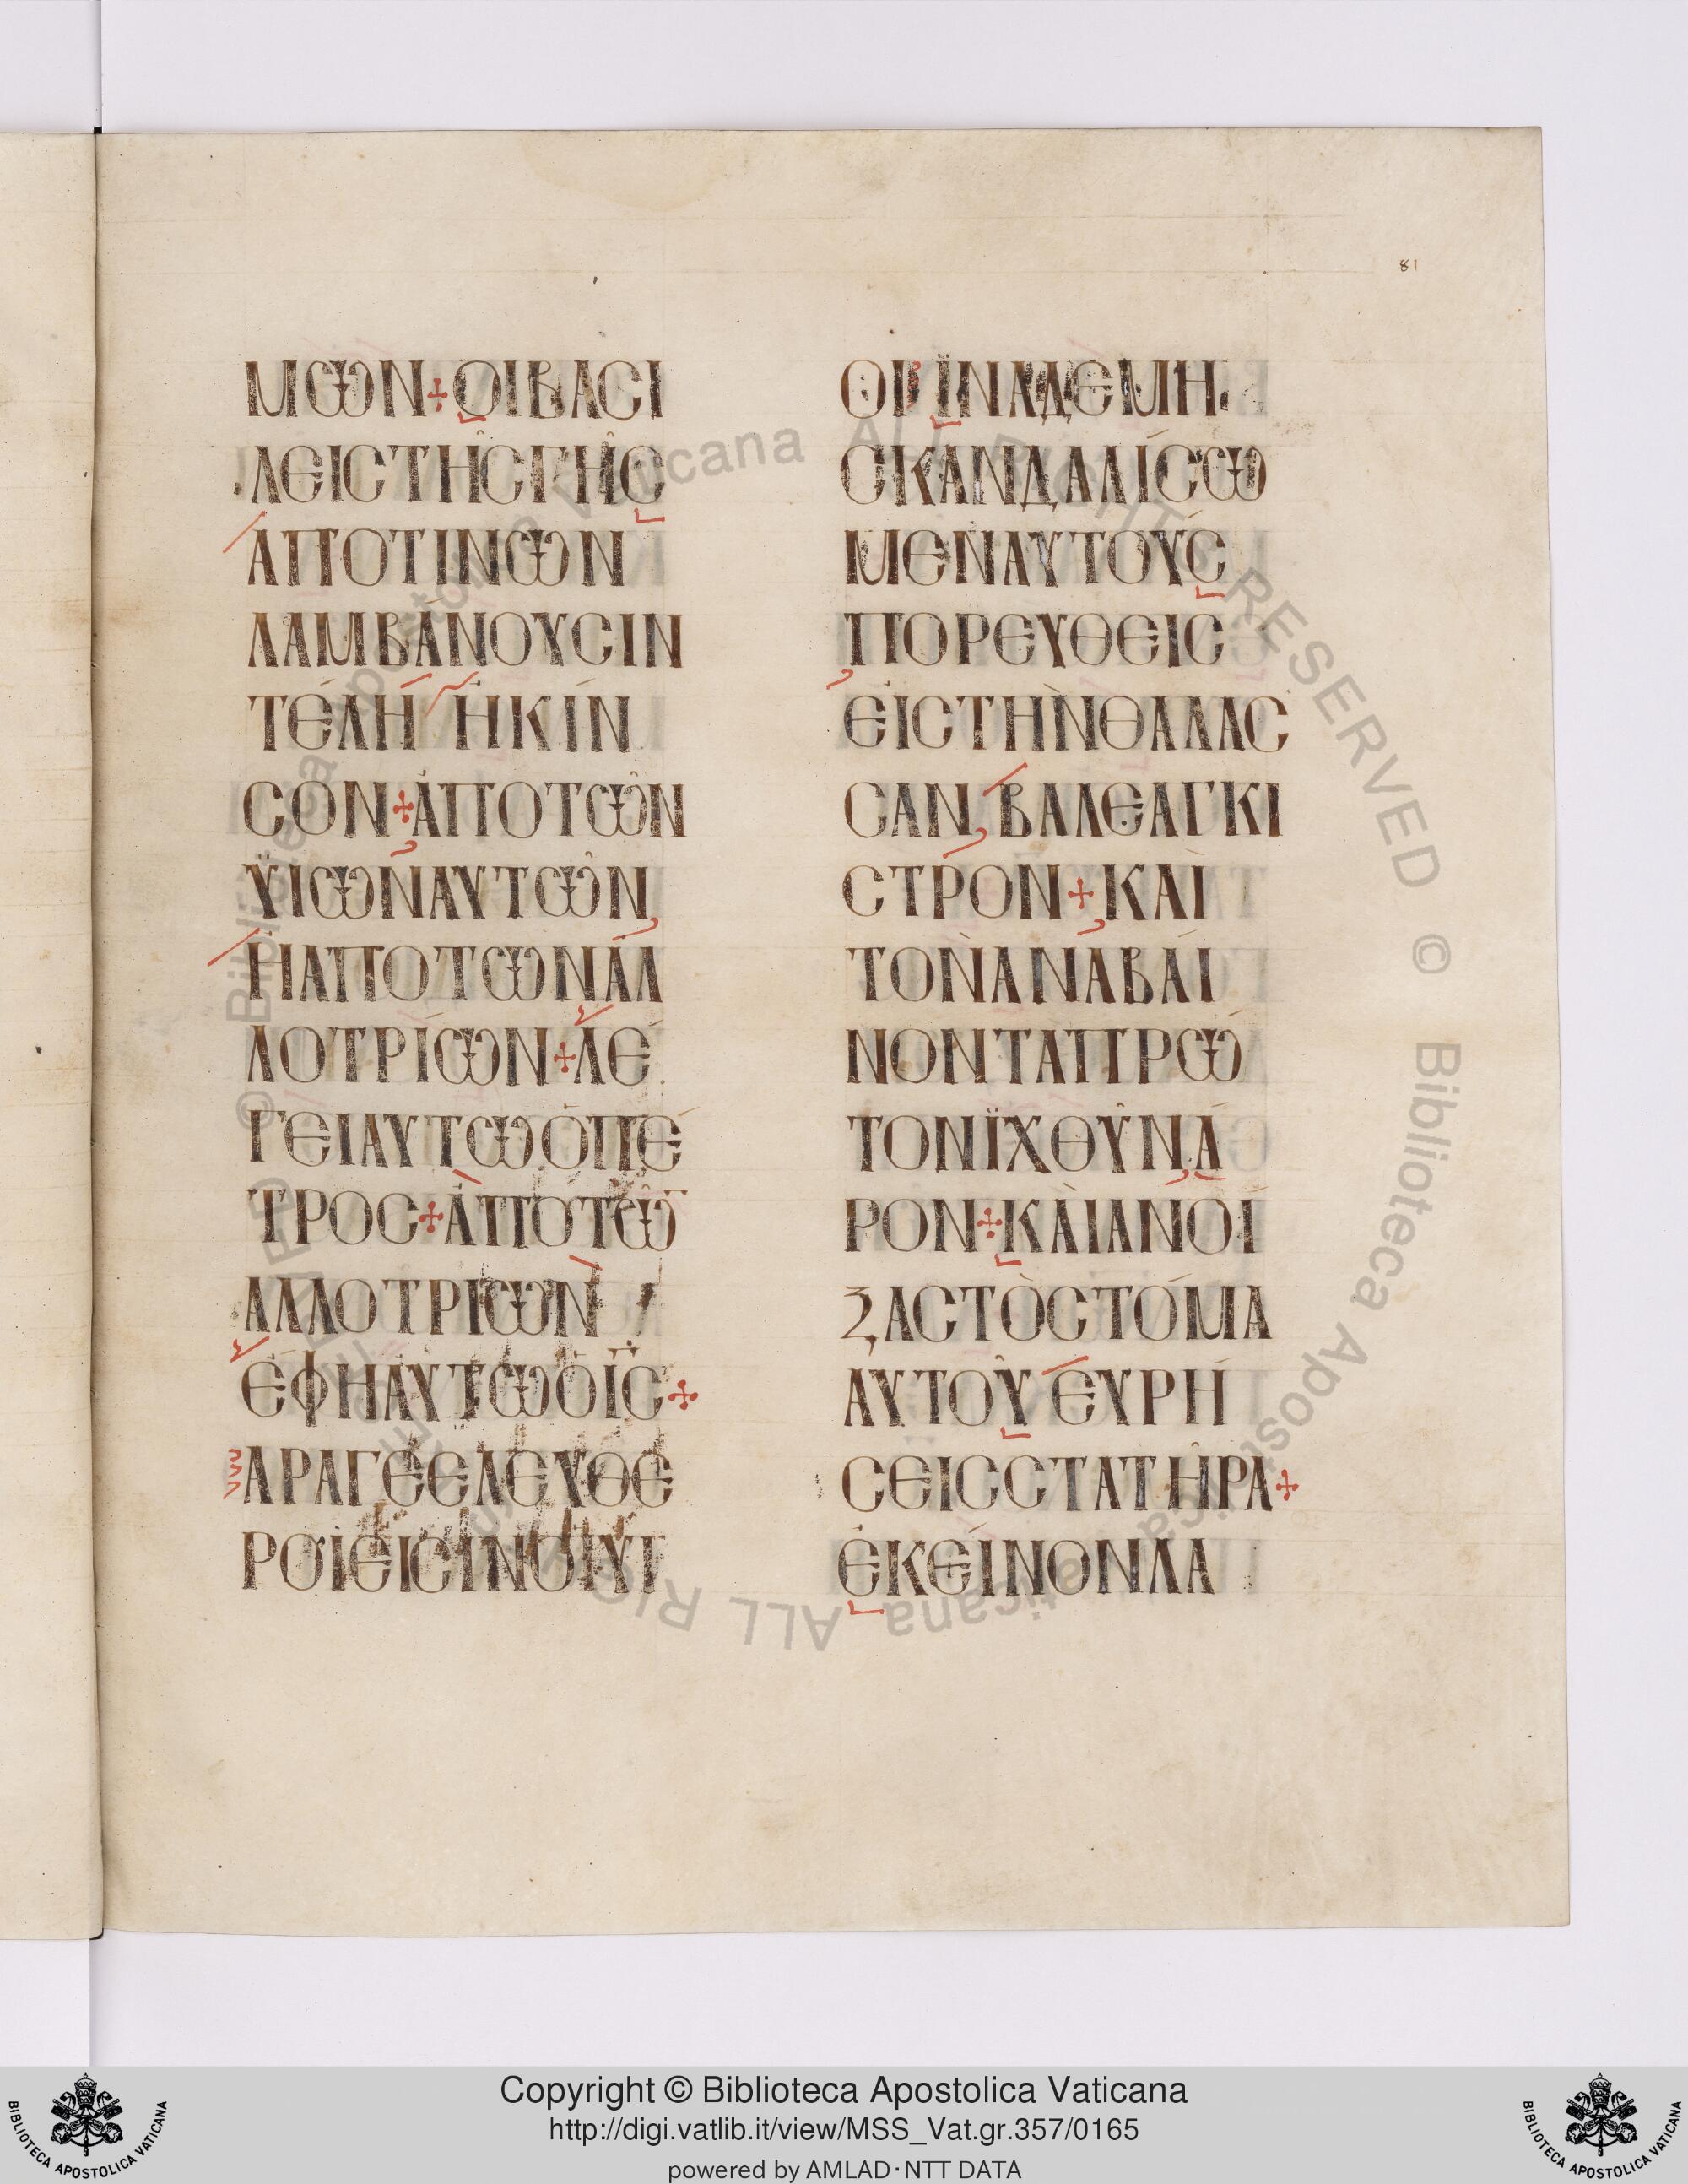 81
ΜΩΝ + ΟΙ ΒΑCΙ
ΛΕΙC ΤΗC ΓΗC
ΑΠΟ ΤΙΝΩΝ
ΛΑΜΒΑΝΟΥCΙΝ
ΤΕΛΗ Η ΚΙΝ
CΟΝ + ΑΠΟ ΤΩΝ
ΫΙΩΝ ΑΥΤΩΝ
Η ΑΠΟ ΤΩΝ ΑΛ
ΛΟΤΡΙΩΝ + ΛΕ
ΓΕΙ ΑΥΤΩ Ο ΠΕ
ΤΡΟC + ΑΠΟ ΤΩ̅
ΑΛΛΟΤΡΙΩΝ
ΕΦΗ ΑΥΤΩ Ο Ι̅C̅ +
ΑΡΑΓΕ ΕΛΕΥΘΕ
ΡΟΙ ΕΙCΙΝ ΟΙ ΥΙ
ΟΙ ΪΝΑ ΔΕ ΜΗ
CΚΑΝΔΑΛΙCΩ
ΜΕΝ ΑΥΤΟΥC
ΠΟΡΕΥΘΕΙC
ΕΙC ΤΗΝ ΘΑΛΑC
CΑΝ ΒΑΛΕ ΑΓΚΙ
CΤΡΟΝ + ΚΑΙ
ΤΟΝ ΑΝΑΒΑΙ
ΝΟΝΤΑ ΠΡΩ
ΤΟΝ ΪΧΘΥΝ Α
ΡΟΝ + ΚΑΙ ΑΝΟΙ
ΞΑC ΤΟ CΤΟΜΑ
ΑΥΤΟΥ ΕΥΡΗ
CΕΙC CΤΑΤΗΡΑ +
ΕΚΕΙΝΟΝ ΛΑ
© Biblioteca Apostolica Vaticana ALL RIGHTS RESERVED
Copyright © Biblioteca Apostolica Vaticana
http://digi.vatlib.it/view/MSS_Vat.gr.357/0165
powered by AMLAD・NTT DATA
BIBLIOTECA APOSTOLICA VATICANA
BIBLIOTECA APOSTOLICA VATICANA